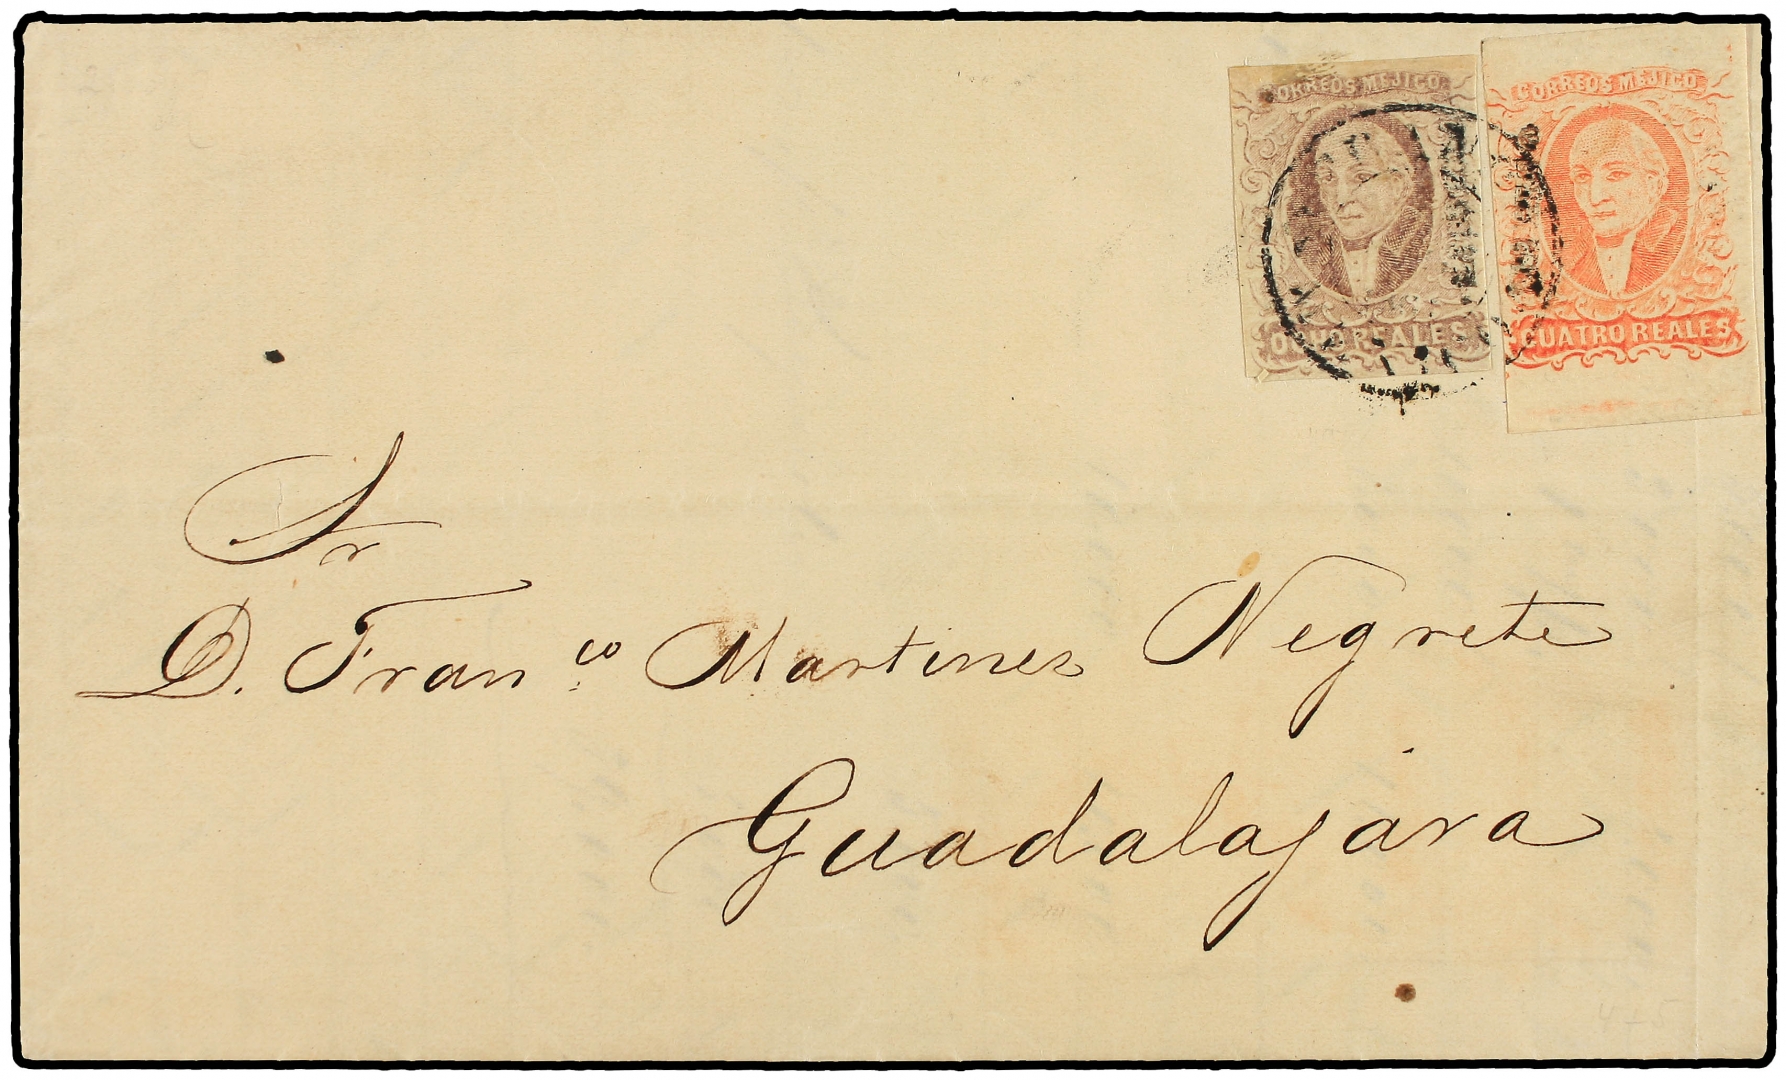 CORREOS MEJICO
OCHO REALES
CORREOS MEJICO
CUATRO REALES
Sr
D. Fran.co Martinez Negrete
Guadalajara
415